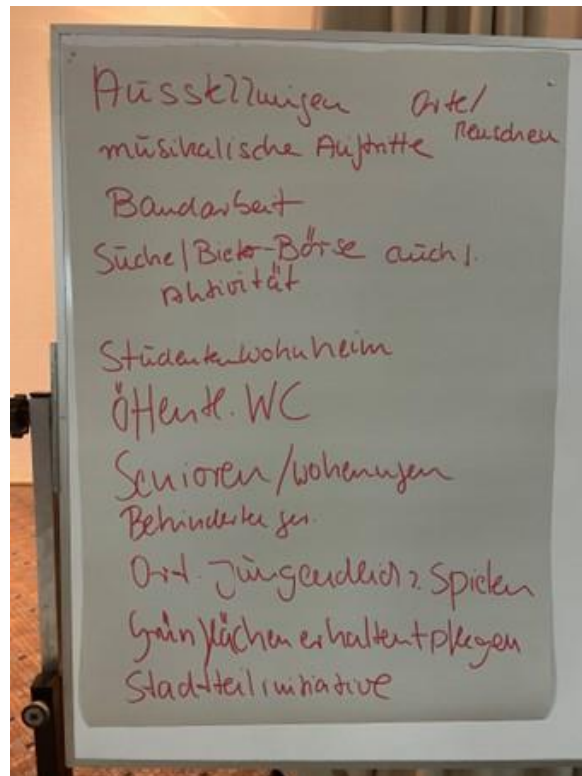 Ausstellungen Orte/
musikalische Auftritte Menschen
Bandarbeit
Suche/Biete-Börse auch f.
Aktivität
Studentenwohnheim
Öffentl. WC
Senioren/wohnungen
Behinderten ger.
Ort. Jugendlich z. Spielen
Grünflächen erhalten + pflegen
Stadtteilinitiative